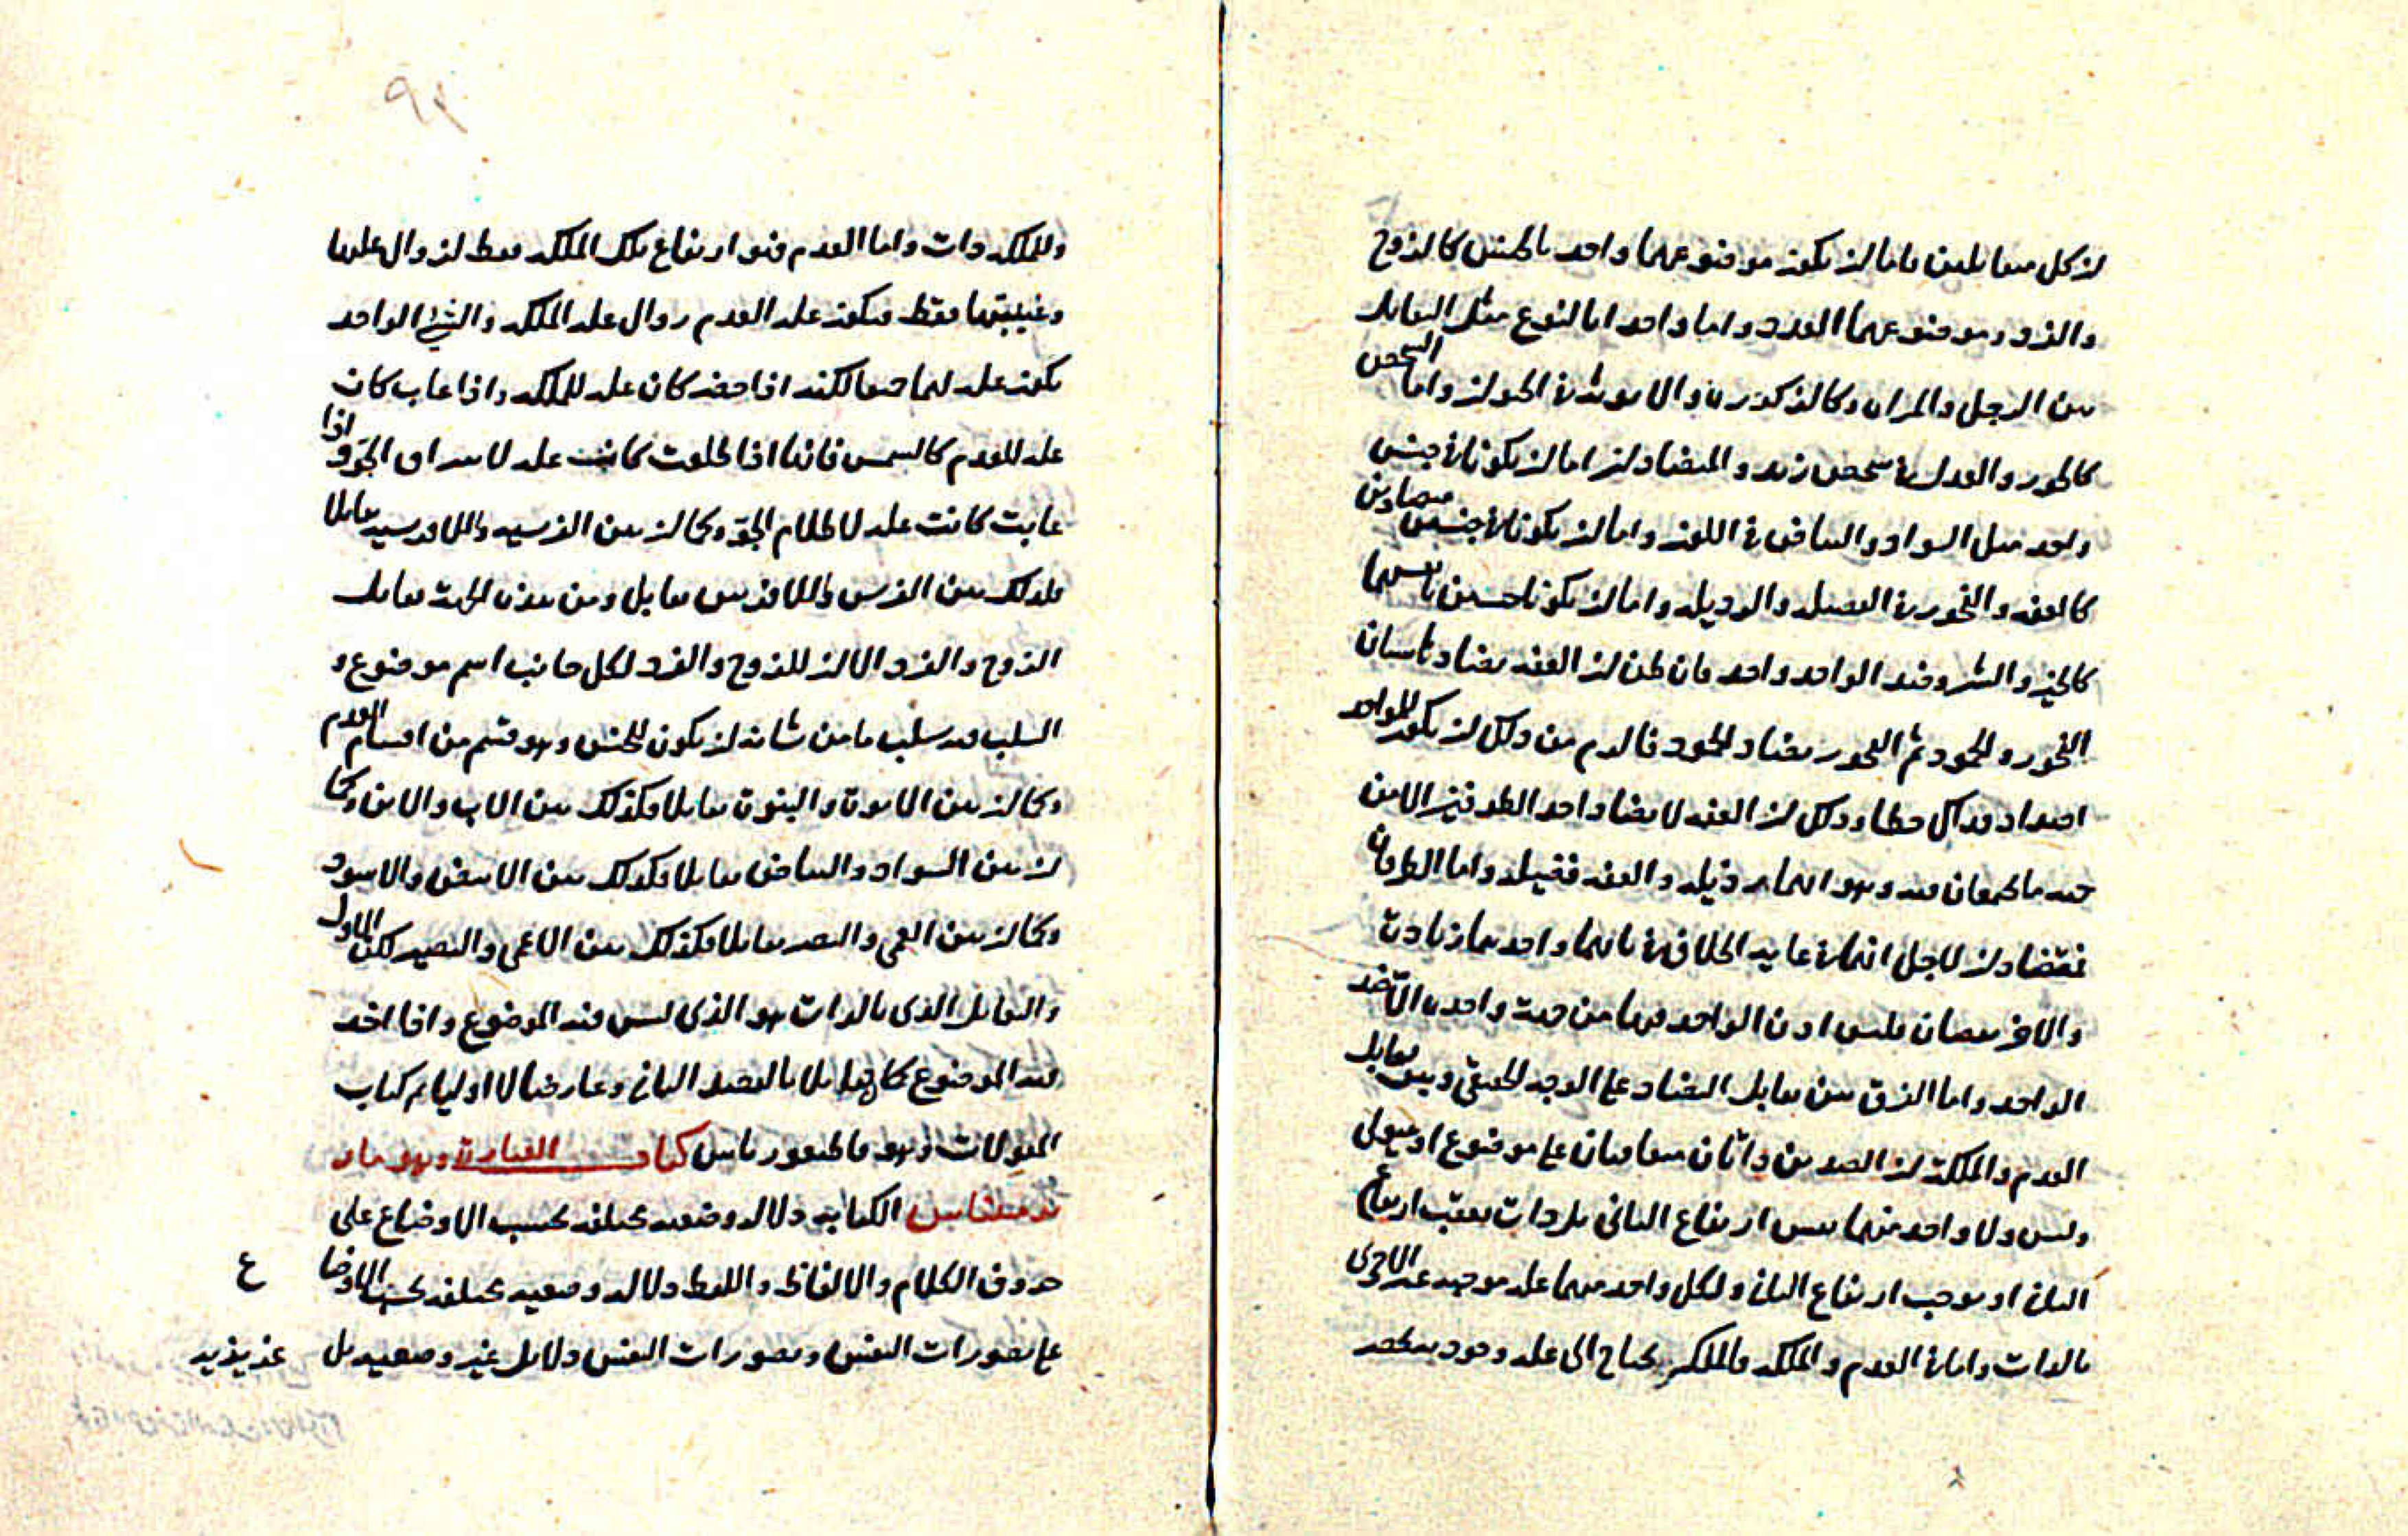 ان كل متقابلين فاما ان يكون موضوعهما واحد بالجنس كالزوج
والفرد وموضوعهما العدد واما واحد اما لنوع مثل التقابل
بين الرجل والمراه وكالذكوره والانوثة في الحيوان واما بالشخص
كالجور والعدل في شخص زيد والمتضادان اما ان يكونا في جنس
واحد مثل السواد والبياض في اللون واما ان يكونا في جنسين متضادين
كالعفه والفجور في الفضيله والرذيله واما ان يكونا جنسين بانفسهما
كالخير والشر وضد الواحد واحد فان ظن ان العفه يضادها شيئان
الفجور والخمود ثم الفجور يضاد الخمود فالزم من ذلك ان يكون للواحد
اضداد فذلك خطا وذلك ان العفه لا يضادها احد الطرفين الا من
جهه ما يجتمعان فيه وهو انهما رذيله والعفه فضيله واما الطرفان
فمتضادان لاجل انهما في غايه الخلاف فانهما واحدهما زيادة
والاخر نقصان فليس اذن الواحد منهما من جهة واحده الا ضد
الواحد واما الفرق بين تقابل التضاد على الوجه الحقيقي وبين تقابل
العدم والملكة ان الضدين ذاتان متعاقبان على موضوع او هيولى
وليس ولا واحد منهما نفس ارتفاع الثاني بل ذات يعقب ارتفاع
الثاني او يوجب ارتفاع الثاني ولكل واحد منهما عله موجبه غير الاخرى
بالذات واما في العدم والملكه فالملكه يحتاج الى عله وجوديه تخصه
وللملكه ذات واما العدم فهو ارتفاع تلك الملكه فقط لزوال علتها
وغيبتها فقط فيكون عله العدم زوال عله الملكه والشئ الواحد
يكون عله لهما جميعا لكنه اذا حضر كان عله للملكه واذا غاب كان
عله للعدم كالشمس فانها اذا طلعت كانت عله لاشراق الجو واذا
غابت كانت عله لاظلام الجو وكما ان بين الفرسيه واللافرسيه تقابلا
فكذلك بين الفرس واللافرس تقابل ومن هذه الجهة تقابل
الزوج والفرد الا ان للزوج والفرد لكل جانب اسم موضوع و
السلب فيه سلب ما من شانه ان يكون للجنس وهو قسم من اقسام العدم
وكما ان بين الابوة والبنوة تقابلا فكذلك بين الاب والابن وكما
ان بين السواد والبياض تقابلا فكذلك بين الابيض والاسود
وكما ان بين العمى والبصر تقابلا فكذلك بين الاعمى والبصير لكن الاول
والتقابل الذي بالذات هو الذي ليس فيه الموضوع واذا اخذ
فيه الموضوع كان تقابلا بالقصد الثاني وعارضا لا اوليا تم كتاب
المقولات وهو قاطيغورياس كتاب العبارة وهو بار
ير مينياس الكتابه دلالة وضعيه مختلفه بحسب الاوضاع على
حروف الكلام والالفاظ واللفظ دلاله وضعيه مختلفه بحسب الاوضا ع
على تصورات النفس وتصورات النفس دلايل غير وضعيه بل